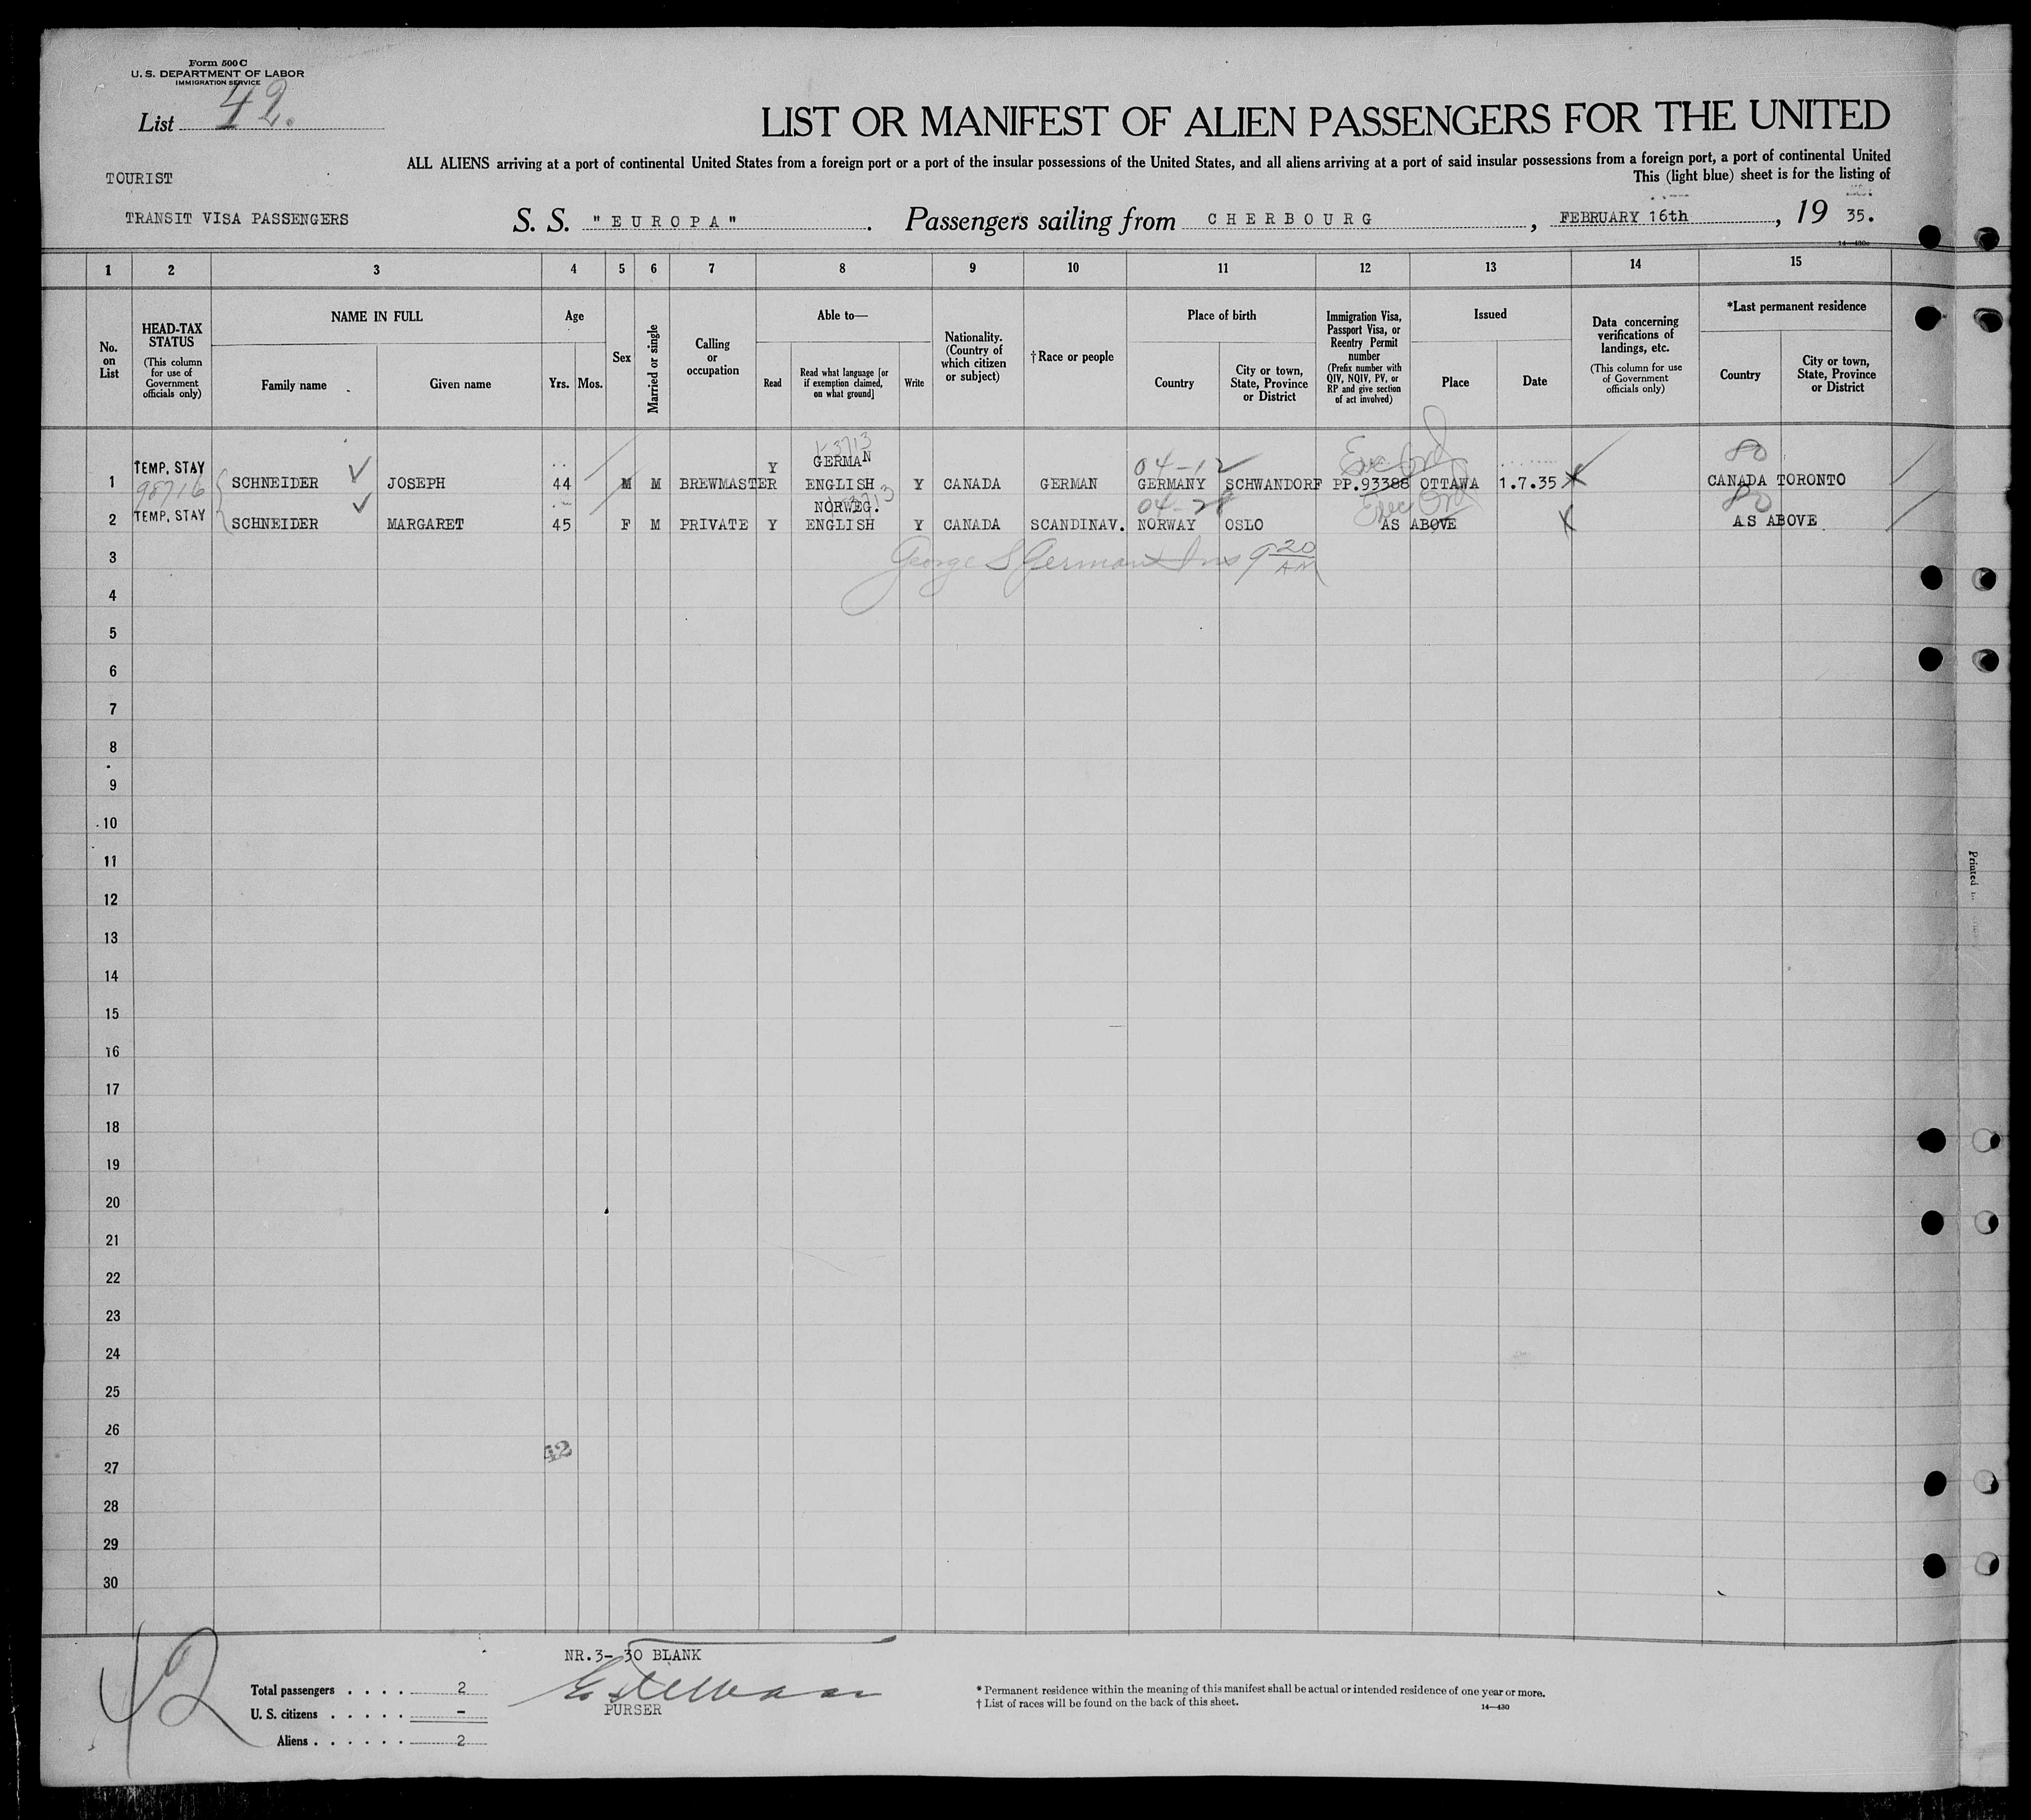 Form 500 C
U. S. DEPARTMENT OF LABOR
IMMIGRATION SERVICE
List 42.
LIST OR MANIFEST OF ALIEN PASSENGERS FOR THE UNITED
ALL ALIENS arriving at a port of continental United States from a foreign port or a port of the insular possessions of the United States, and all aliens arriving at a port of said insular possessions from a foreign port, a port of continental United
This (light blue) sheet is for the listing of
TOURIST
TRANSIT VISA PASSENGERS
S. S. "EUROPA". Passengers sailing from CHERBOURG, FEBRUARY 16th, 19 35.
1 2 3 4 5 6 7 8 9 10 11 12 13 14 15
No. on List
HEAD-TAX STATUS
(This column for use of Government officials only)
NAME IN FULL
Family name
Given name
Age
Yrs. Mos.
Sex
Married or single
Calling or occupation
Able to—
Read
Read what language [or if exemption claimed, on what ground]
Write
Nationality. (Country of which citizen or subject)
†Race or people
Place of birth
Country
City or town, State, Province or District
Immigration Visa, Passport Visa, or Reentry Permit number
(Prefix number with QIV, NQIV, PV, or RP and give section of act involved)
Issued
Place
Date
Data concerning verifications of landings, etc.
(This column for use of Government officials only)
*Last permanent residence
Country
City or town, State, Province or District
TEMP. STAY Y GERMAN 04-12 80
1 98716 SCHNEIDER JOSEPH 44 M M BREWMASTER ENGLISH Y CANADA GERMAN GERMANY SCHWANDORF PP.93388 OTTAWA 1.7.35 CANADA TORONTO
TEMP. STAY NORWEG. 04-28 Exec Ord 80
2 SCHNEIDER MARGARET 45 F M PRIVATE Y ENGLISH Y CANADA SCANDINAV. NORWAY OSLO AS ABOVE AS ABOVE
3 George S German Ins 9 20 AM
4
5
6
7
8
9
10
11
12
13
14
15
16
17
18
19
20
21
22
23
24
25
26
42
27
28
29
30
42
NR.3-30 BLANK
Total passengers . . . . 2
U. S. citizens . . . . . -
Aliens . . . . . . 2
PURSER
* Permanent residence within the meaning of this manifest shall be actual or intended residence of one year or more.
† List of races will be found on the back of this sheet.
14—430
Printed